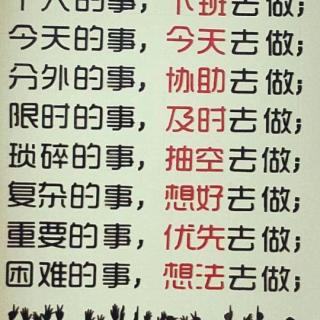 个人的事，下班去做；
今天的事，今天去做；
分外的事，协助去做；
限时的事，及时去做；
琐碎的事，抽空去做；
复杂的事，想好去做；
重要的事，优先去做；
困难的事，想法去做；